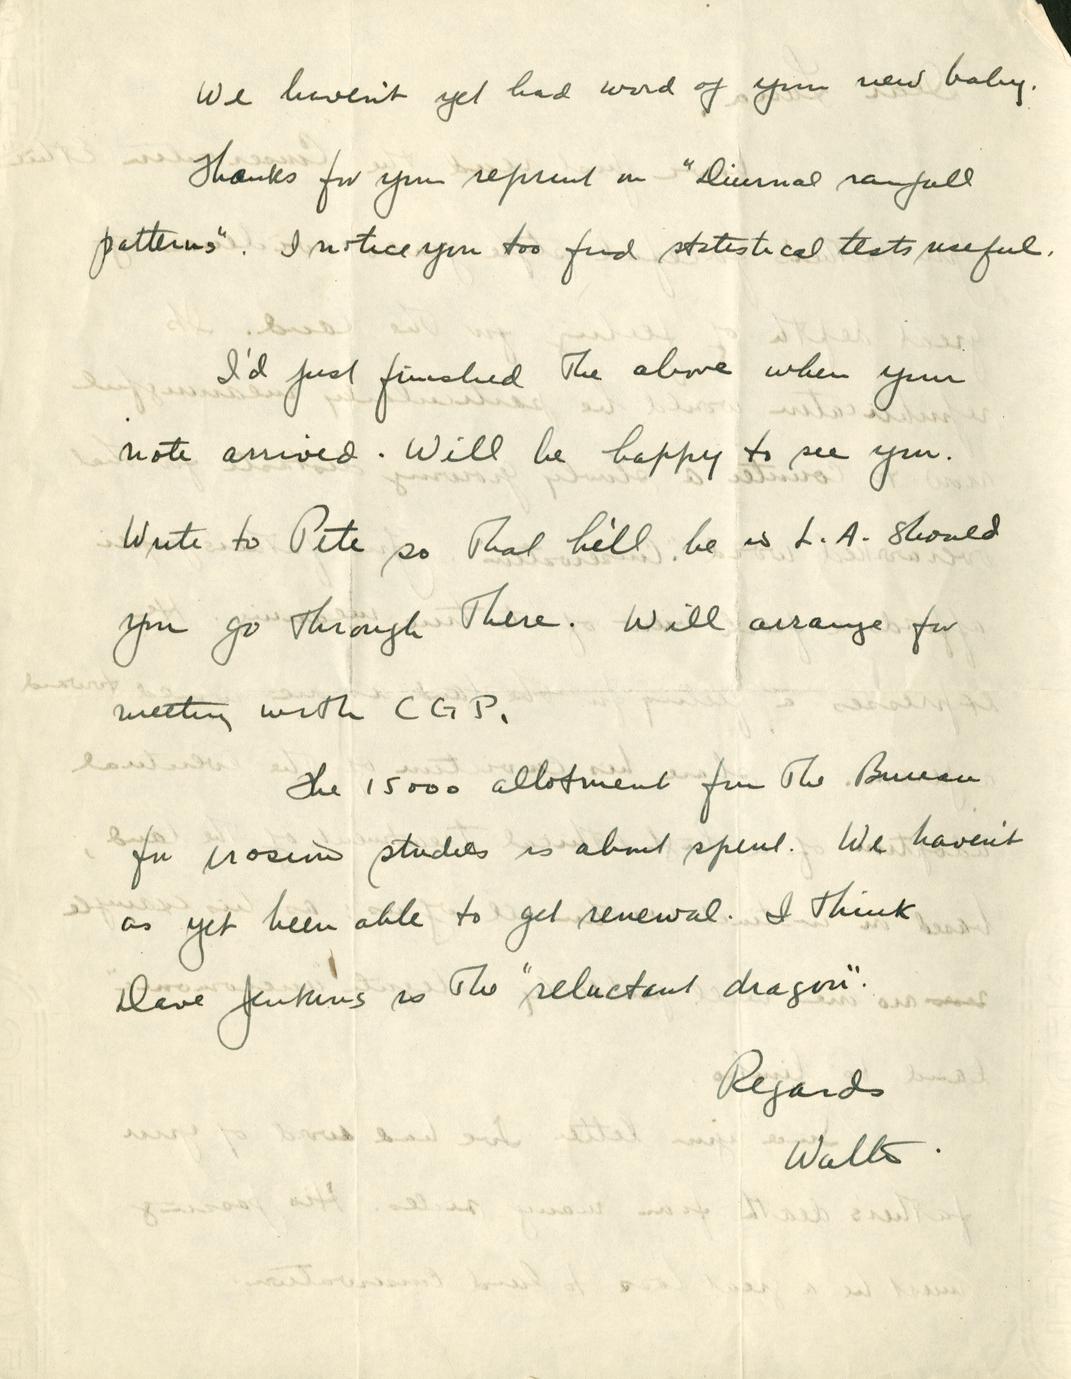 We haven't yet had word of your new baby.
Thanks for your reprint on "Diurnal rainfall
patterns". I notice you too find statistical tests useful.
I'd just finished the above when your
note arrived. Will be happy to see you.
Write to Pete so that he'll be in L.A. should
you go through there. Will arrange for
meeting with CGP.
The 15000 allotment from the Bureau
for erosion studies is about spent. We haven't
as yet been able to get renewal. I think
Dave Jenkins is the "reluctant dragon".
Regards
Walt